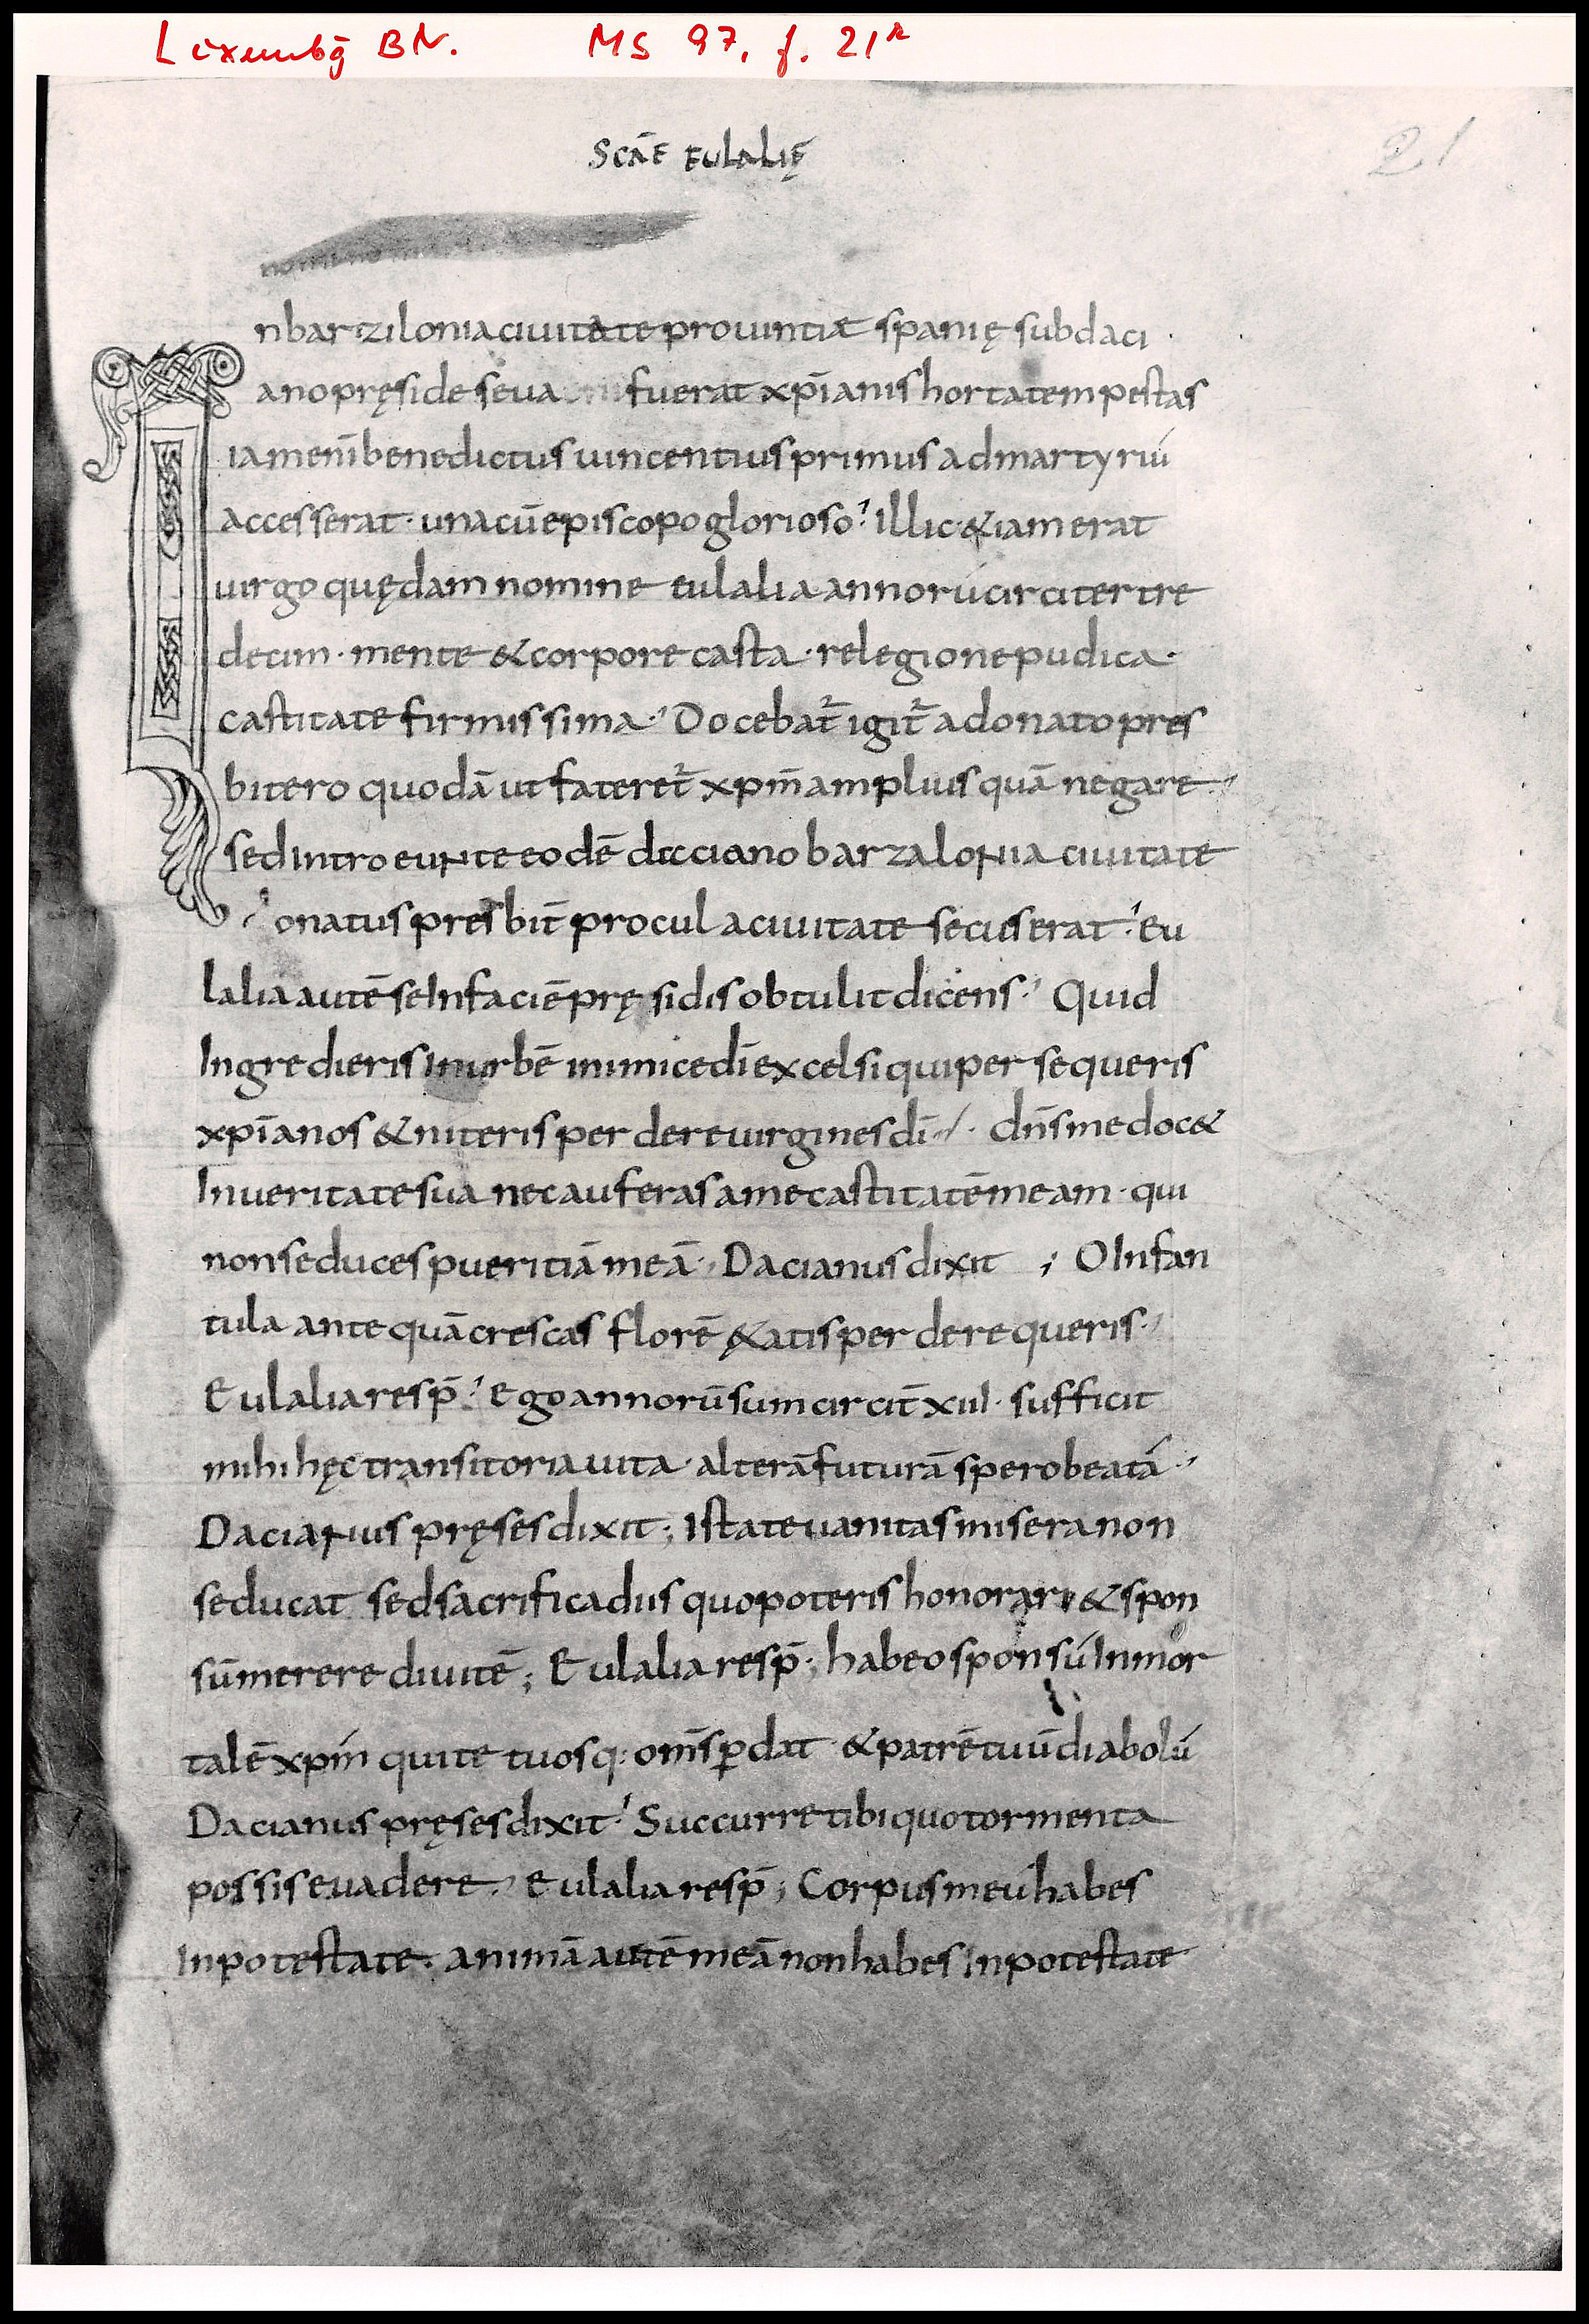 Luxembg BN. MS 97, f. 21r
21
SCAE EULALIĘ
In bartzilonia ciuitate prouintiae spanię sub daci
ano pręside seua fuerat xp̄ianis horta tempestas
iam enī benedictus uincentius primus ad martyriū
accesserat · una cū episcopo glorioso. Illic &iam erat
uirgo quędam nomine eulalia annorū circiter tre
decim · mente & corpore casta · relegione pudica ·
castitate firmissima. Docebat̄ igit̄ a donato pres
bitero quodā ut fateret̄ xpm̄ amplius quā negare.
sed intro eunte eodē dacciano barzalonia ciuitate
donatus presbit̄ procul a ciuitate secuserat. Eu
lalia autē se In faciē pręsidis obtulit dicens. Quid
Ingredieris In urbē inimice dī excelsi qui persequeris
xp̄ianos & niteris perdere uirgines dī. dn̄s me doc&
In ueritate sua nec auferas a me castitatē meam · qui
non seduces pueritiā meā. Dacianus dixit ; O Infan
tula ante quā crescas florē &atis perdere queris.
Eulalia resp̄. Ego annorū sum circit̄ xiii · sufficit
mihi hęc transitoria uita · alterā futurā spero beatā.
Dacianus pręses dixit ; Ista te uanitas misera non
seducat sed sacrifica diis quo poteris honorari & spon
sū merere diuitē ; Eulalia resp̄ ; habeo sponsū Inmor
talē xpm̄ qui te tuosq: om̄s ꝑdat & patrē tuū diabolū
Dacianus pręses dixit. Succurre tibi quo tormenta
possis euadere. Eulalia resp̄ ; Corpus meū habes
In potestate. animā autē meā non habes In potestate